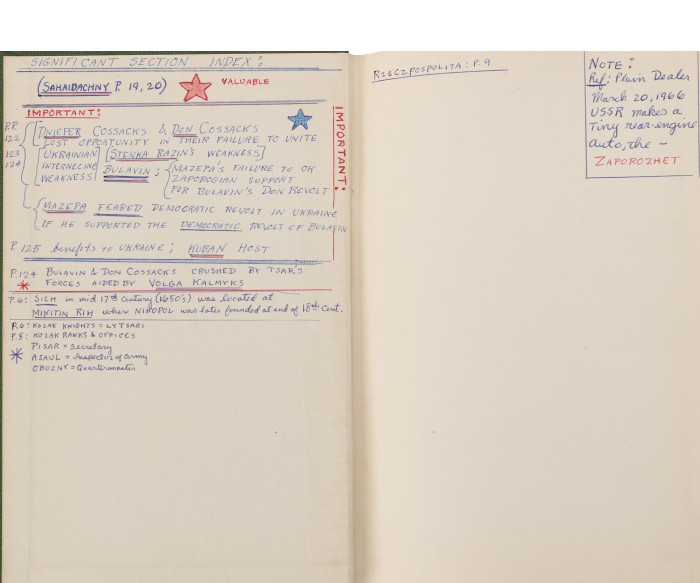 SIGNIFICANT SECTION INDEX:
(SAHAIDACHNY P. 19, 20) VALUABLE
IMPORTANT:
PP. 122 DNIEPER COSSACKS & DON COSSACKS
LOST OPPORTUNITY IN THEIR FAILURE TO UNITE
123 UKRAINIAN [STENKA RAZIN'S WEAKNESS]
124 INTERNECINE BULAVIN; MAZEPA'S FAILURE TO OK
WEAKNESS ZAPOROGIAN SUPPORT
FOR BULAVIN'S DON REVOLT
MAZEPA FEARED DEMOCRATIC REVOLT IN UKRAINE
IF HE SUPPORTED THE DEMOCRATIC REVOLT OF BULAVIN
IMPORTANT:
P. 125 benefits to UKRAINE; KUBAN HOST
P. 124 BULAVIN & DON COSSACKS CRUSHED BY TSAR'S
FORCES AIDED BY VOLGA KALMYKS
P. 6: SICH in mid 17th century (1650's) was located at
MIKITIN RIH where NIKOPOL was later founded at end of 18th Cent.
P. 6: KOZAK KNIGHTS = LYTSARI
P. 8: KOZAK RANKS & OFFICES
PISAR = Secretary
ASAUL = Inspector of army
OBOZNY = Quartermaster
RZECZPOSPOLITA: P. 9
NOTE:
Ref: Plain Dealer
March 20, 1966
USSR makes a
Tiny rear-engine
auto, the —
ZAPOROZHET